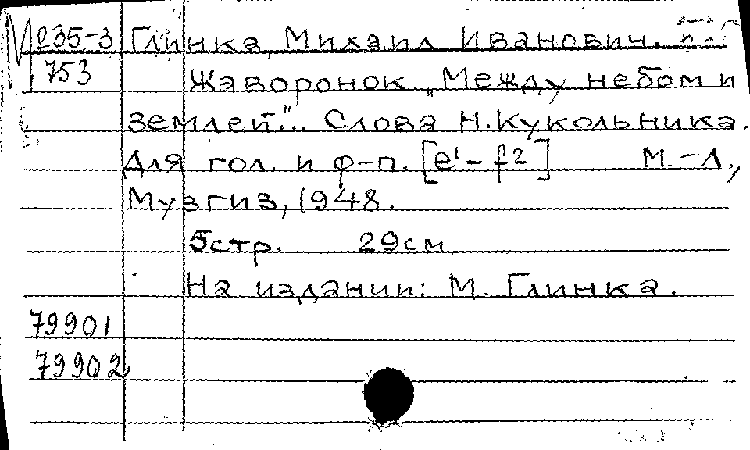 М 035-3 Глинка, Михаил Иванович.
753 Жаворонок „Между небом и
землей"... Слова Н. Кукольника.
Для гол. и ф-п. [e¹-f²] М.-Л.,
Музгиз, 1948.
5стр. 29см
На издании: М. Глинка.
79901
79902